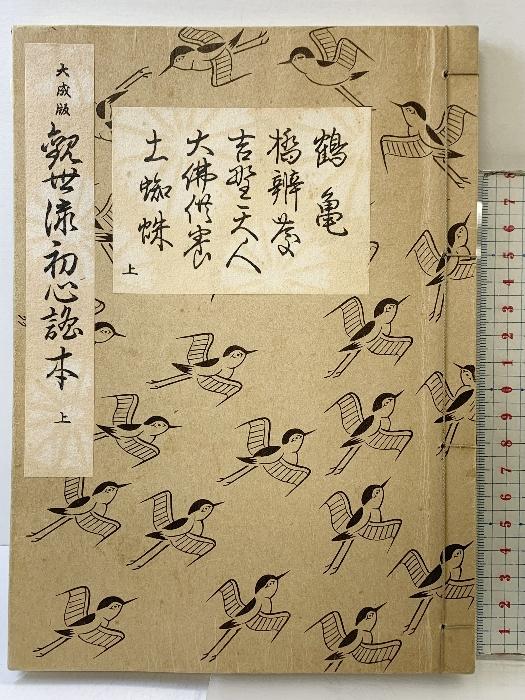 大成版
観世流初心謡本 上
鶴亀
橋辨慶
吉野天人
大佛供養
土蜘蛛
上